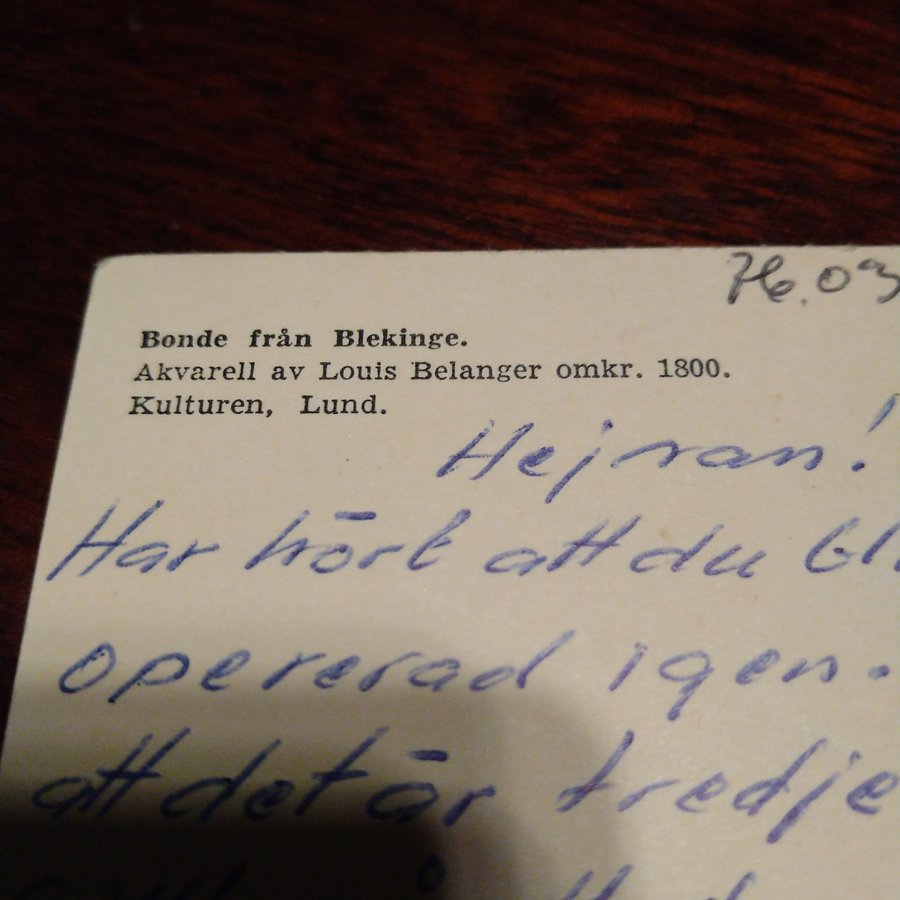 76.03
Bonde från Blekinge.
Akvarell av Louis Belanger omkr. 1800.
Kulturen, Lund.
Hejsan!
Har hört att du bl
opererad igen.
att det är tredje